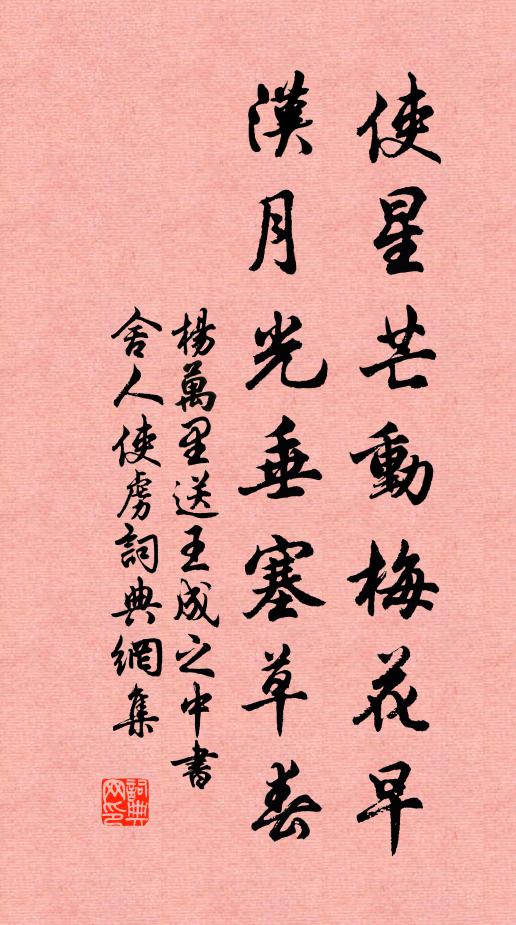 使星芒動梅花早
漢月光垂塞草春
楊萬里送王成之中書
舍人使虜詞典網集
詞典网印